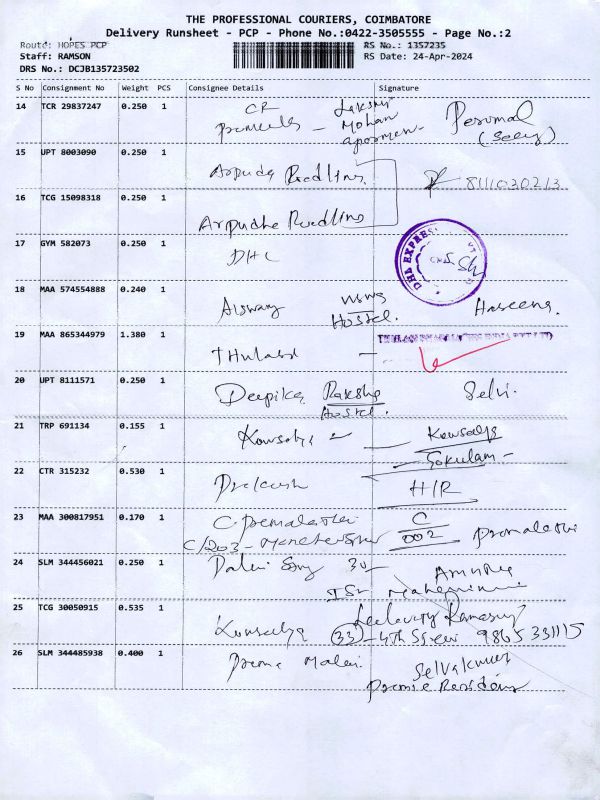 THE PROFESSIONAL COURIERS, COIMBATORE
Delivery Runsheet - PCP - Phone No.:0422-3505555 - Page No.:2
Route: HOPES PCP
RS No.: 1357235
Staff: RAMSON
RS Date: 24-Apr-2024
DRS No.: DCJB135723502
S No Consignment No Weight PCS Consignee Details Signature
14 TCR 29837247 0.250 1 CR Lakshmi Perumal
Mohan
15 UPT 8003090 0.250 1 Arpuda 8111030213
16 TCG 15098318 0.250 1 Arpudha
17 GYM 582073 0.250 1 DHL DHL EXPRESS
18 MAA 574554888 0.240 1 Haseena.
Hostel.
19 MAA 865344979 1.380 1 Thulasi -
20 UPT 8111571 0.250 1 Deepika Raksha Selvi.
Hostel.
21 TRP 691134 0.155 1 Kowsalya - Kowsalya
Gokulam -
22 CTR 315232 0.530 1 Prakash H/R
23 MAA 300817951 0.170 1 C C
C/203 - 002
24 SLM 344456021 0.250 1
25 TCG 30050915 0.535 1
Kowsalya (33) - 4th 9865 331115
26 SLM 344485938 0.400 1 Prema Malai Selvakumar